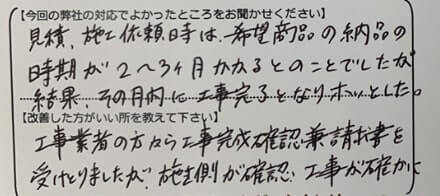 【今回の弊社の対応でよかったところをお聞かせください】
見積、施工依頼時は、希望商品の納品の
時期が2〜3ヶ月かかるとのことでしたが
結果、その月内に工事完了となりホッとした。
【改善した方がいい所を教えて下さい】
工事業者の方から工事完成確認兼請求書を
受けとりましたが、施主側が確認、工事が確かに